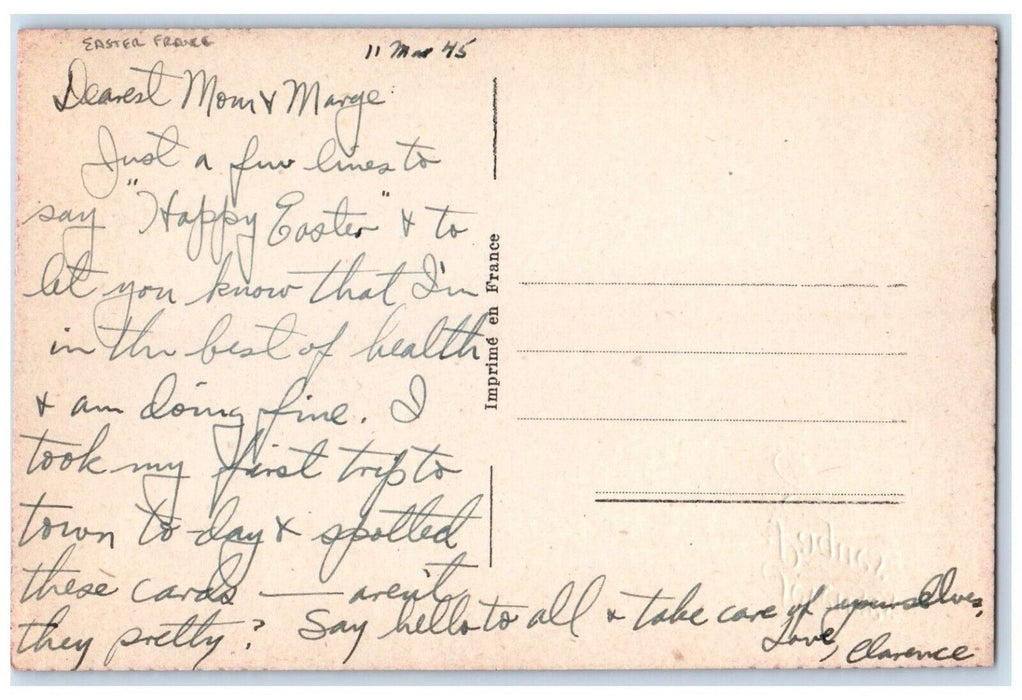 EASTER FRANCE
11 Mar 45
Dearest Mom & Marge
Just a few lines to
say "Happy Easter" & to
let you know that I'm
in the best of health
& am doing fine. I
took my first trip to
town to-day & spotted
these cards — aren't
they pretty? Say hello to all & take care of yourselves,
Love, Clarence
Imprimé en France